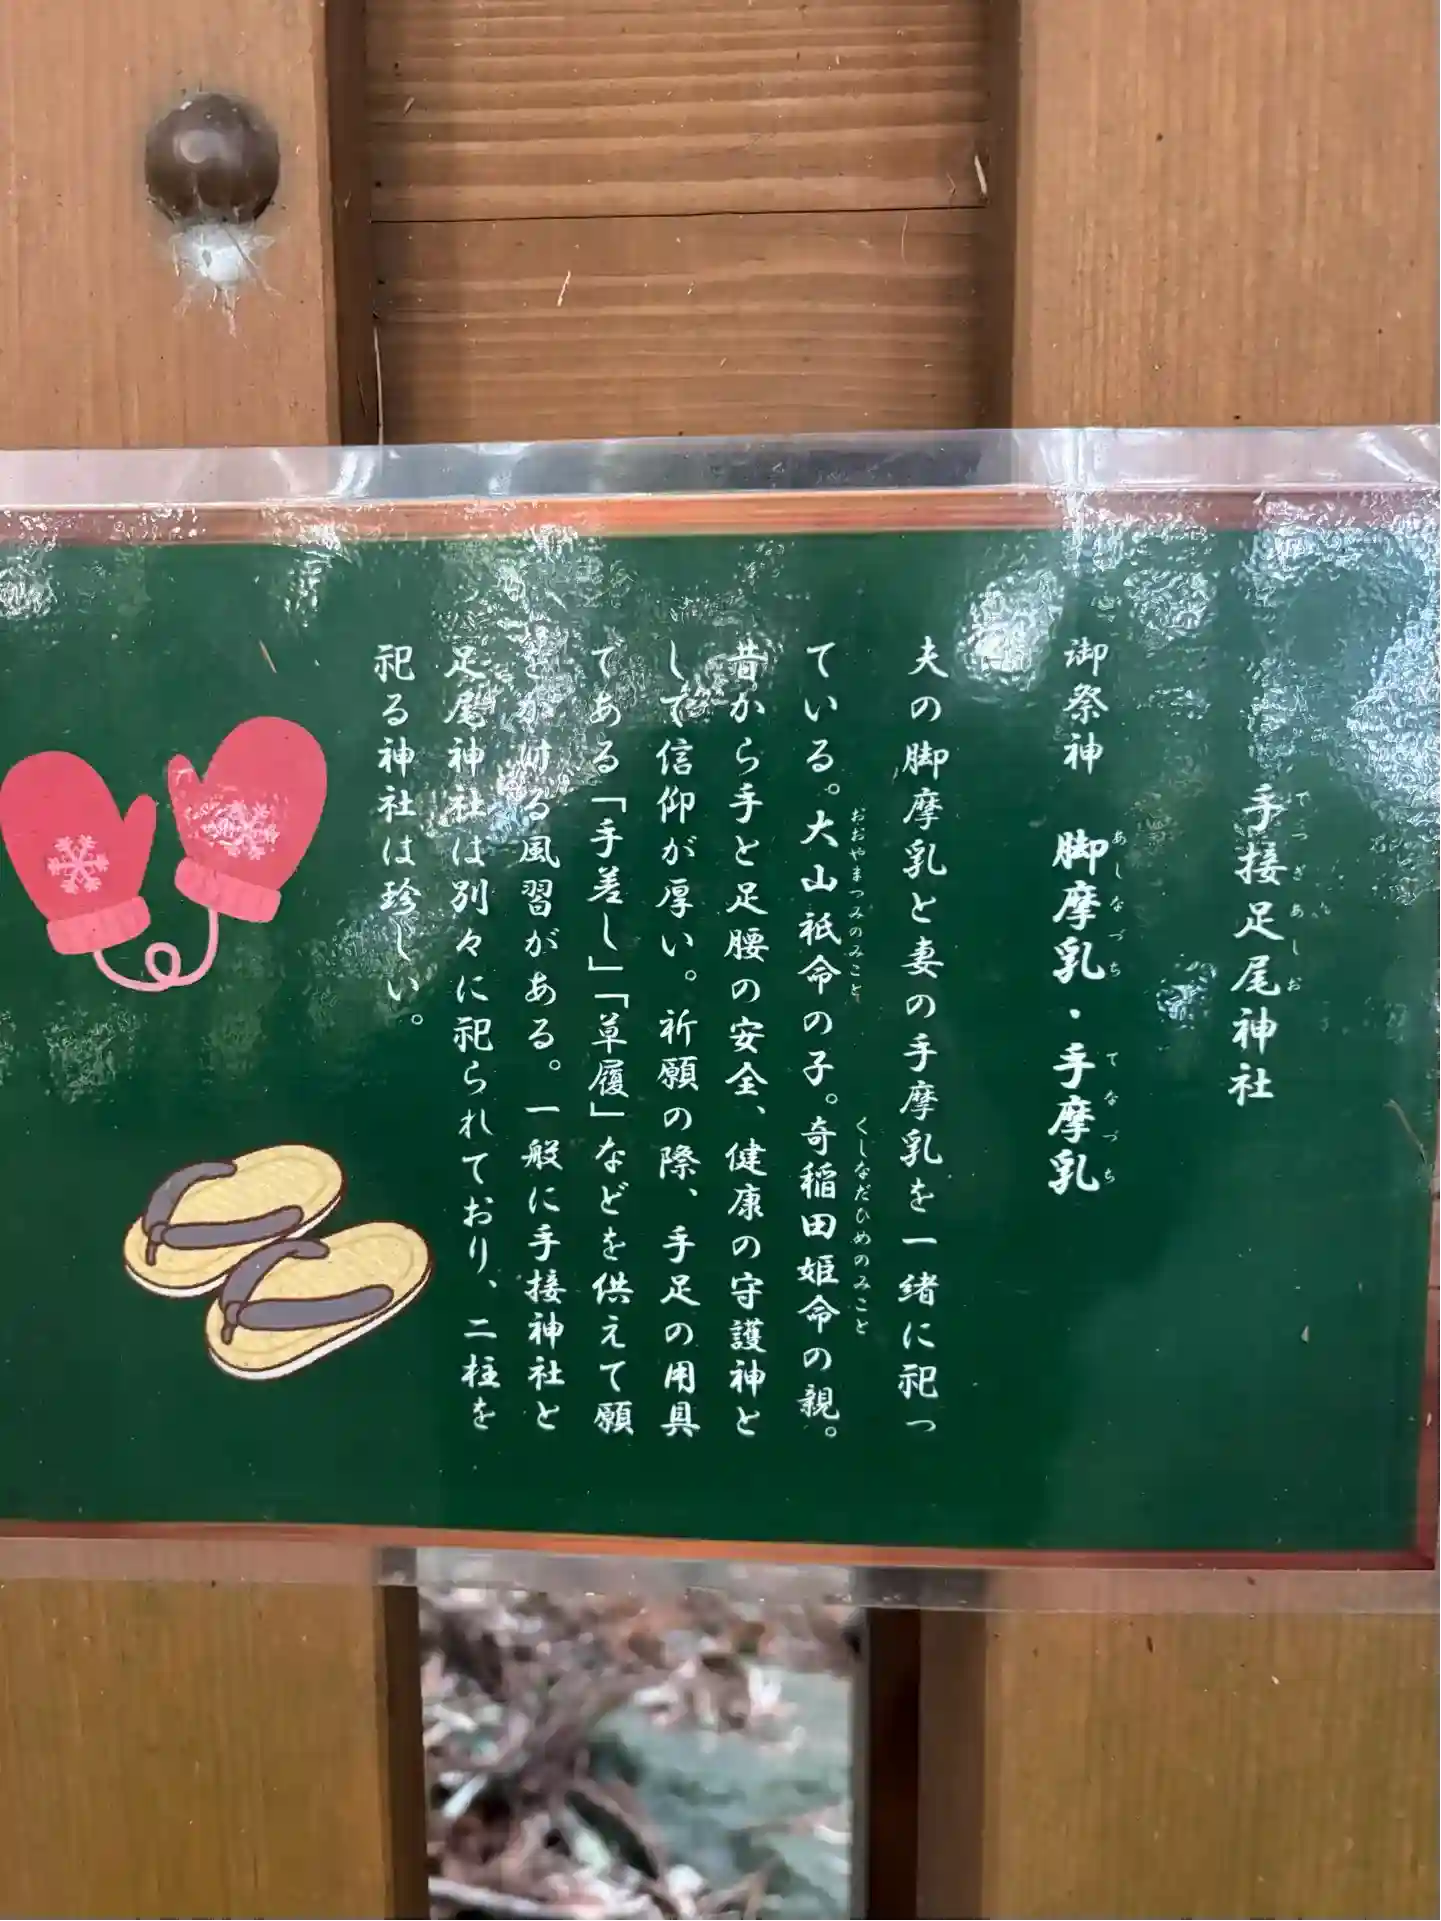 手接足尾神社
てつぎあしお
御祭神 脚摩乳・手摩乳
あしなづち てなづち
夫の脚摩乳と妻の手摩乳を一緒に祀っ
ている。大山祇命の子。奇稲田姫命の親。
おおやまつみのみこと くしなだひめのみこと
昔から手と足腰の安全、健康の守護神と
して信仰が厚い。祈願の際、手足の用具
である「手差し」「草履」などを供えて願
をかける風習がある。一般に手接神社と
足尾神社は別々に祀られており、二柱を
祀る神社は珍しい。